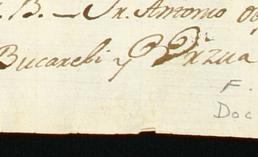 B. Sr. Antonio
Bucareli y Vrzua
F.
Doc